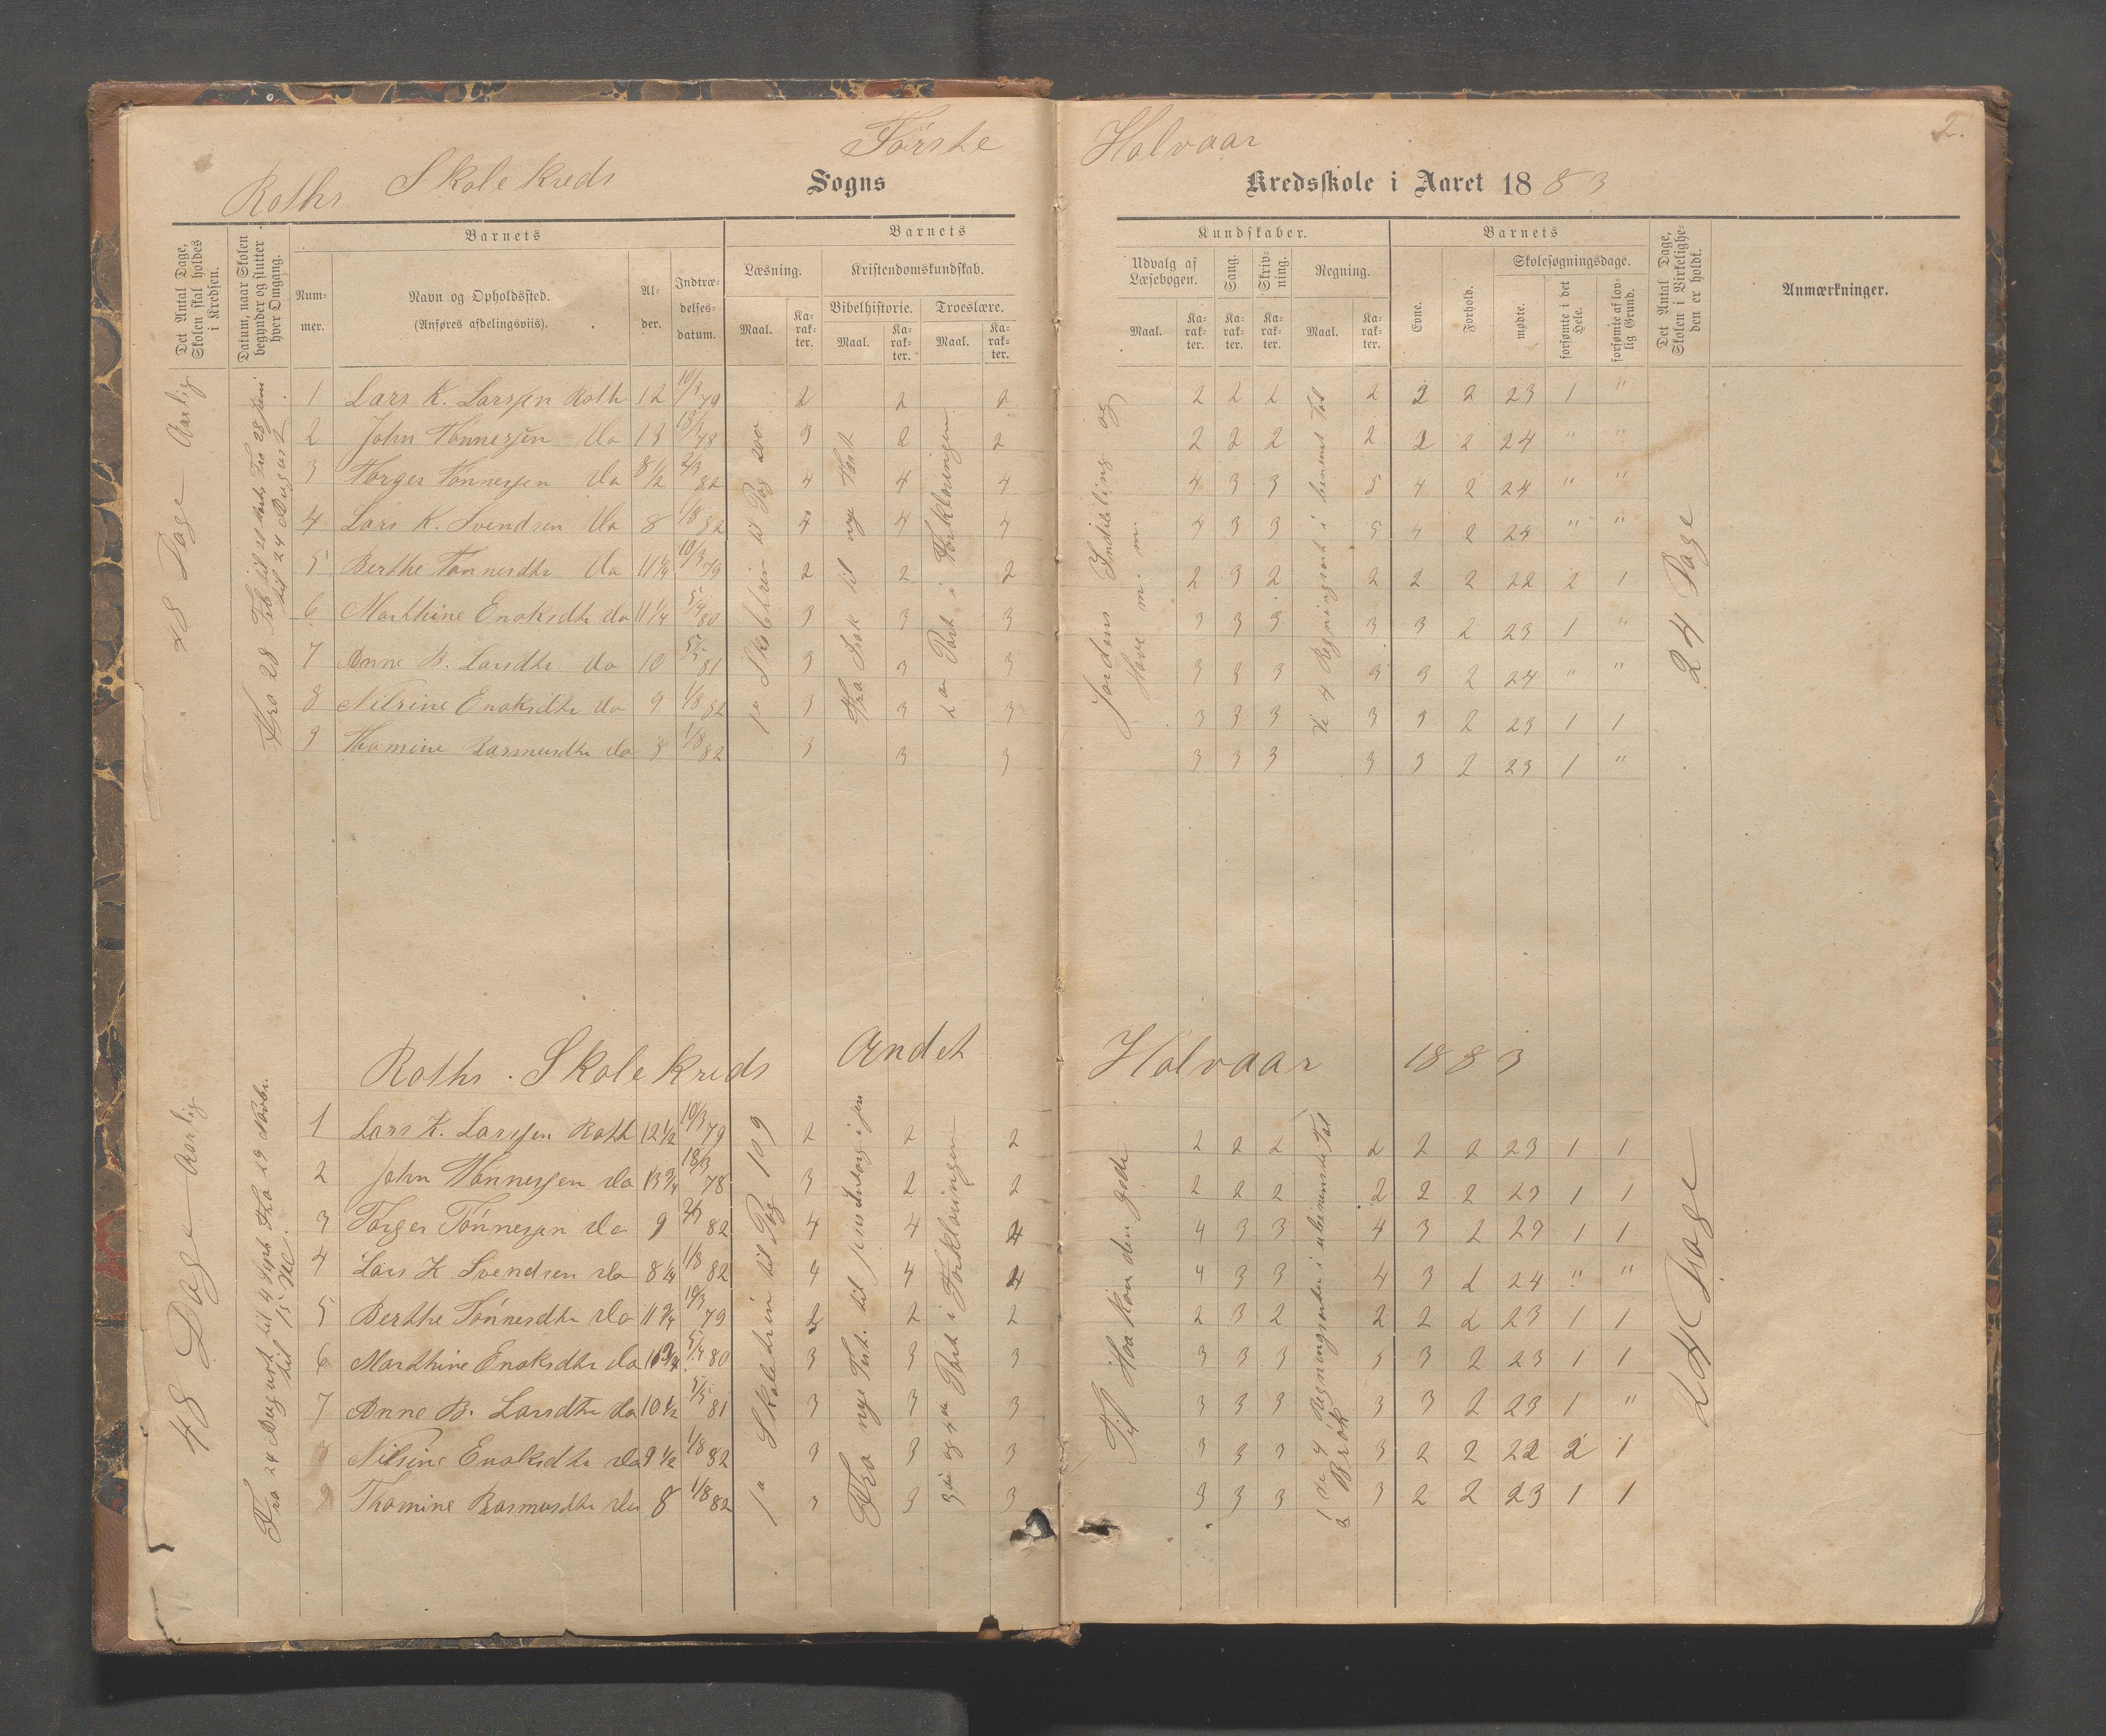 Første Halvaar 2.
Roths Skolekreds Sogns Kredsskole i Aaret 1883
Det Antal Dage, Skolen skal holdes i Kredsen.
Datum, naar Skolen begynder og slutter hver Omgang.
Barnets
Nummer.
Navn og Opholdssted.
(Anføres afdelingsviis).
Alder.
Indtrædelsesdatum.
Barnets
Læsning.
Maal.
Karakter.
Kristendomskundskab.
Bibelhistorie.
Maal.
Karakter.
Troeslære.
Maal.
Karakter.
Kundskaber.
Udvalg af Læsebogen.
Maal.
Karakter.
Sang.
Karakter.
Skrivning.
Karakter.
Regning.
Maal.
Karakter.
Barnets
Evne.
Forhold.
Skolesøgningsdage.
mødte.
forsømte i det Hele.
forsømte af lovlig Grund.
Det Antal Dage, Skolen i Virkeligheden er holdt.
Anmærkninger.
48 Dage Aarlig
til 24 August
1 Lars K. Larssen Roth 12 10/3 79 2 2 2 2 2 2 2 2 2 23 1 "
2 John Tønnessen do 13 18/3 78 3 2 2 2 2 2 2 2 2 24 " "
3 Torger Tønnessen do 8 1/2 2/3 82 4 4 4 4 3 3 5 4 2 24 " "
4 Lars K. Svendsen do 8 1/8 82 4 4 4 4 3 3 5 4 2 24 " "
5 Berthe Tønnesdtr do 11 1/4 10/3 79 2 2 2 2 3 2 2 2 2 22 2 1
6 Marthine Enoksdtr do 11 1/4 5/4 80 3 3 3 3 3 3 3 3 2 23 1 "
7 Anne B. Larsdtr do 10 5/5 81 3 3 3 3 3 3 3 3 2 24 " "
8 Nilsine Enoksdtr do 9 1/8 82 3 3 3 3 3 3 3 3 2 23 1 1
9 Thomine Rasmusdtr do 8 1/8 82 3 3 3 3 3 3 3 3 2 23 1 "
til Pag 200
Fra Isak til nye Test
2en Part i Forklaringen
Jordens Inddeling og
Have m. m.
De 4 Regningsart i benevnt Tal
24 Dage
Roths Skolekreds Andet Halvaar 1883
48 Dage Aarlig
Fra 24 August til 4 Septb Fra 29 Novbr.
til 15 De.
1 Lars K. Larssen Roth 12 1/2 10/3 79 2 2 2 2 2 2 2 2 2 23 1 1
2 John Tønnessen do 13 3/4 18/3 78 3 2 2 2 2 2 2 2 2 23 1 1
3 Torger Tønnessen do 9 2/3 82 4 4 4 4 3 3 4 3 2 23 1 1
4 Lars K Svendsen do 8 1/4 1/8 82 4 4 4 4 3 3 4 3 2 24 " "
5 Berthe Tønnesdtr do 11 3/4 10/3 79 2 2 2 2 3 2 2 2 2 23 1 1
6 Marthine Enoksdtr do 11 3/4 5/4 80 3 3 3 3 3 3 3 3 2 23 1 1
7 Anne B. Larsdtr do 10 1/2 5/5 81 3 3 3 3 3 3 3 3 2 23 1 "
8 Nilsine Enoksdtr do 9 1/2 1/8 82 3 3 3 3 3 3 3 2 2 22 2 1
9 Thomine Rasmusdtr do 8 1/8 82 3 3 3 3 3 3 3 2 2 23 1 1
til Pag 109
Fra nye Test. til
Part i Forklaringen
Til Haakon den gode
de 4 Regningsarter i ubenevnte Tal
Brøk
24 Dage